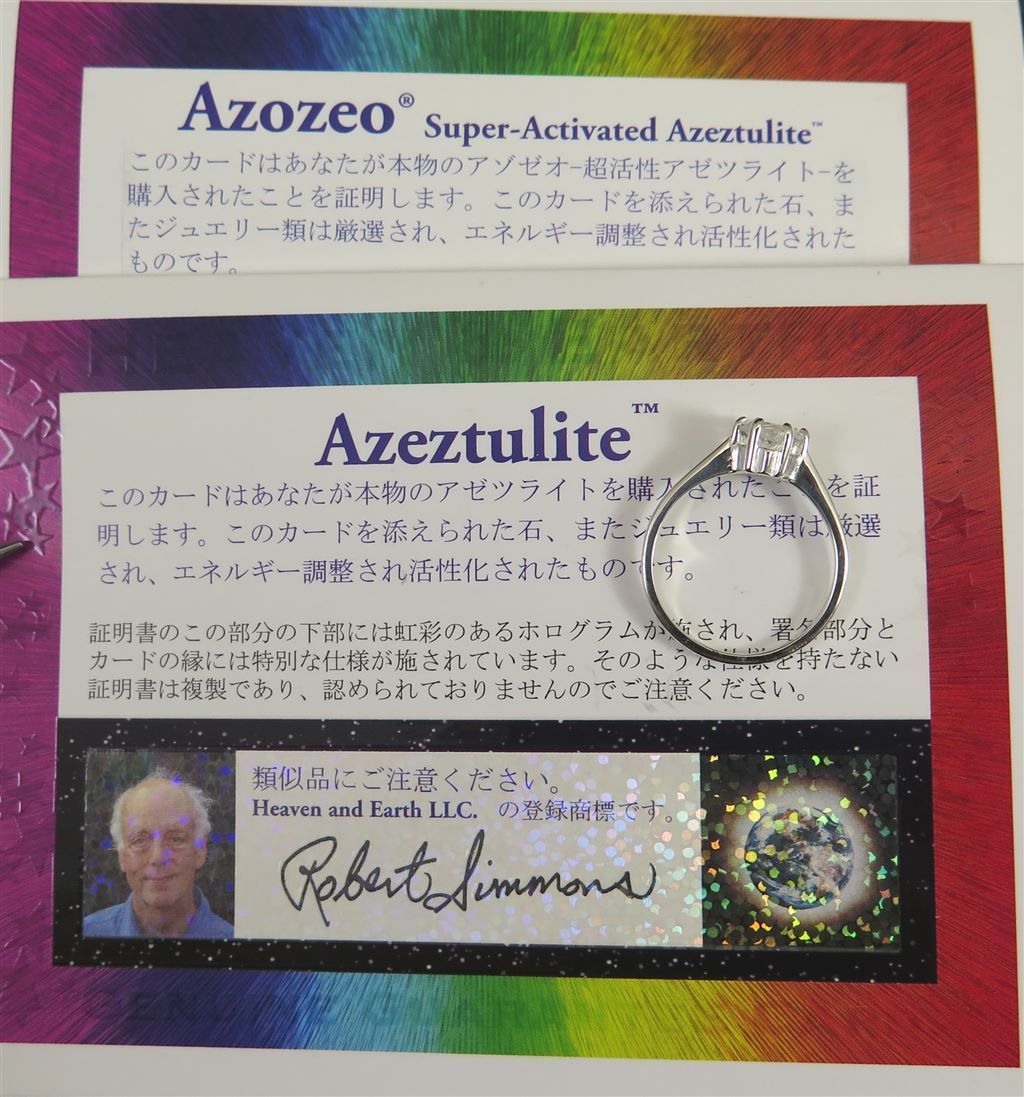 Azozeo® Super-Activated Azeztulite™
このカードはあなたが本物のアゾゼオ-超活性アゼツライト-を
購入されたことを証明します。このカードを添えられた石、ま
たジュエリー類は厳選され、エネルギー調整され活性化された
ものです。
Azeztulite™
このカードはあなたが本物のアゼツライトを購入されたことを証
明します。このカードを添えられた石、またジュエリー類は厳選
され、エネルギー調整され活性化されたものです。
証明書のこの部分の下部には虹彩のあるホログラムが施され、署名部分と
カードの縁には特別な仕様が施されています。そのような仕様を持たない
証明書は複製であり、認められておりませんのでご注意ください。
類似品にご注意ください。
Heaven and Earth LLC. の登録商標です。
Robert Simmons